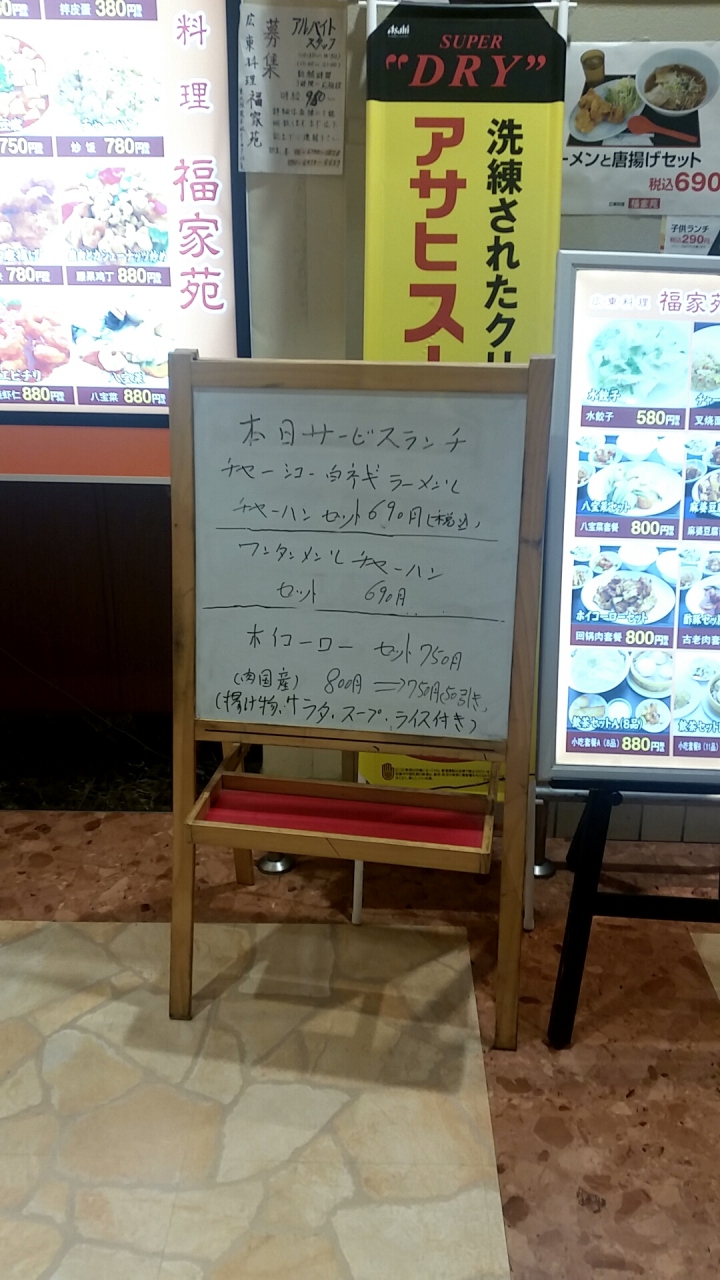 料理 福家苑
拌皮蛋 380円
750円
炒飯 780円
780円
醋果鸡丁 880円
エビチリ
虾仁 880円
八宝菜
八宝菜 880円
アルバイト
スタッフ
募集
広東料理 福家苑
Asahi
SUPER
"DRY"
洗練されたクリ
アサヒスー
ーメンと唐揚げセット
税込690
広東料理 福家苑
子供ランチ
税込290円
本日サービスランチ
チャーシュー白ネギラーメンと
チャーハン セット690円(税込)
ワンタンメンと チャーハン
セット 690円
ホイコーロー セット750円
(肉国産) 800円 ⇒750円(50引き)
(揚げ物、サラダ、スープ、ライス付き)
広東料理 福家苑
水餃子
水餃子 580円
叉烧
八宝菜セット
八宝菜套餐 800円
麻婆豆腐
ホイコーローセット
回鍋肉套餐 800円
酢豚セット
古老肉套
飲茶セットA(8品)
小吃套餐A(8品) 880円
飲茶セット
小吃套餐B(11品)